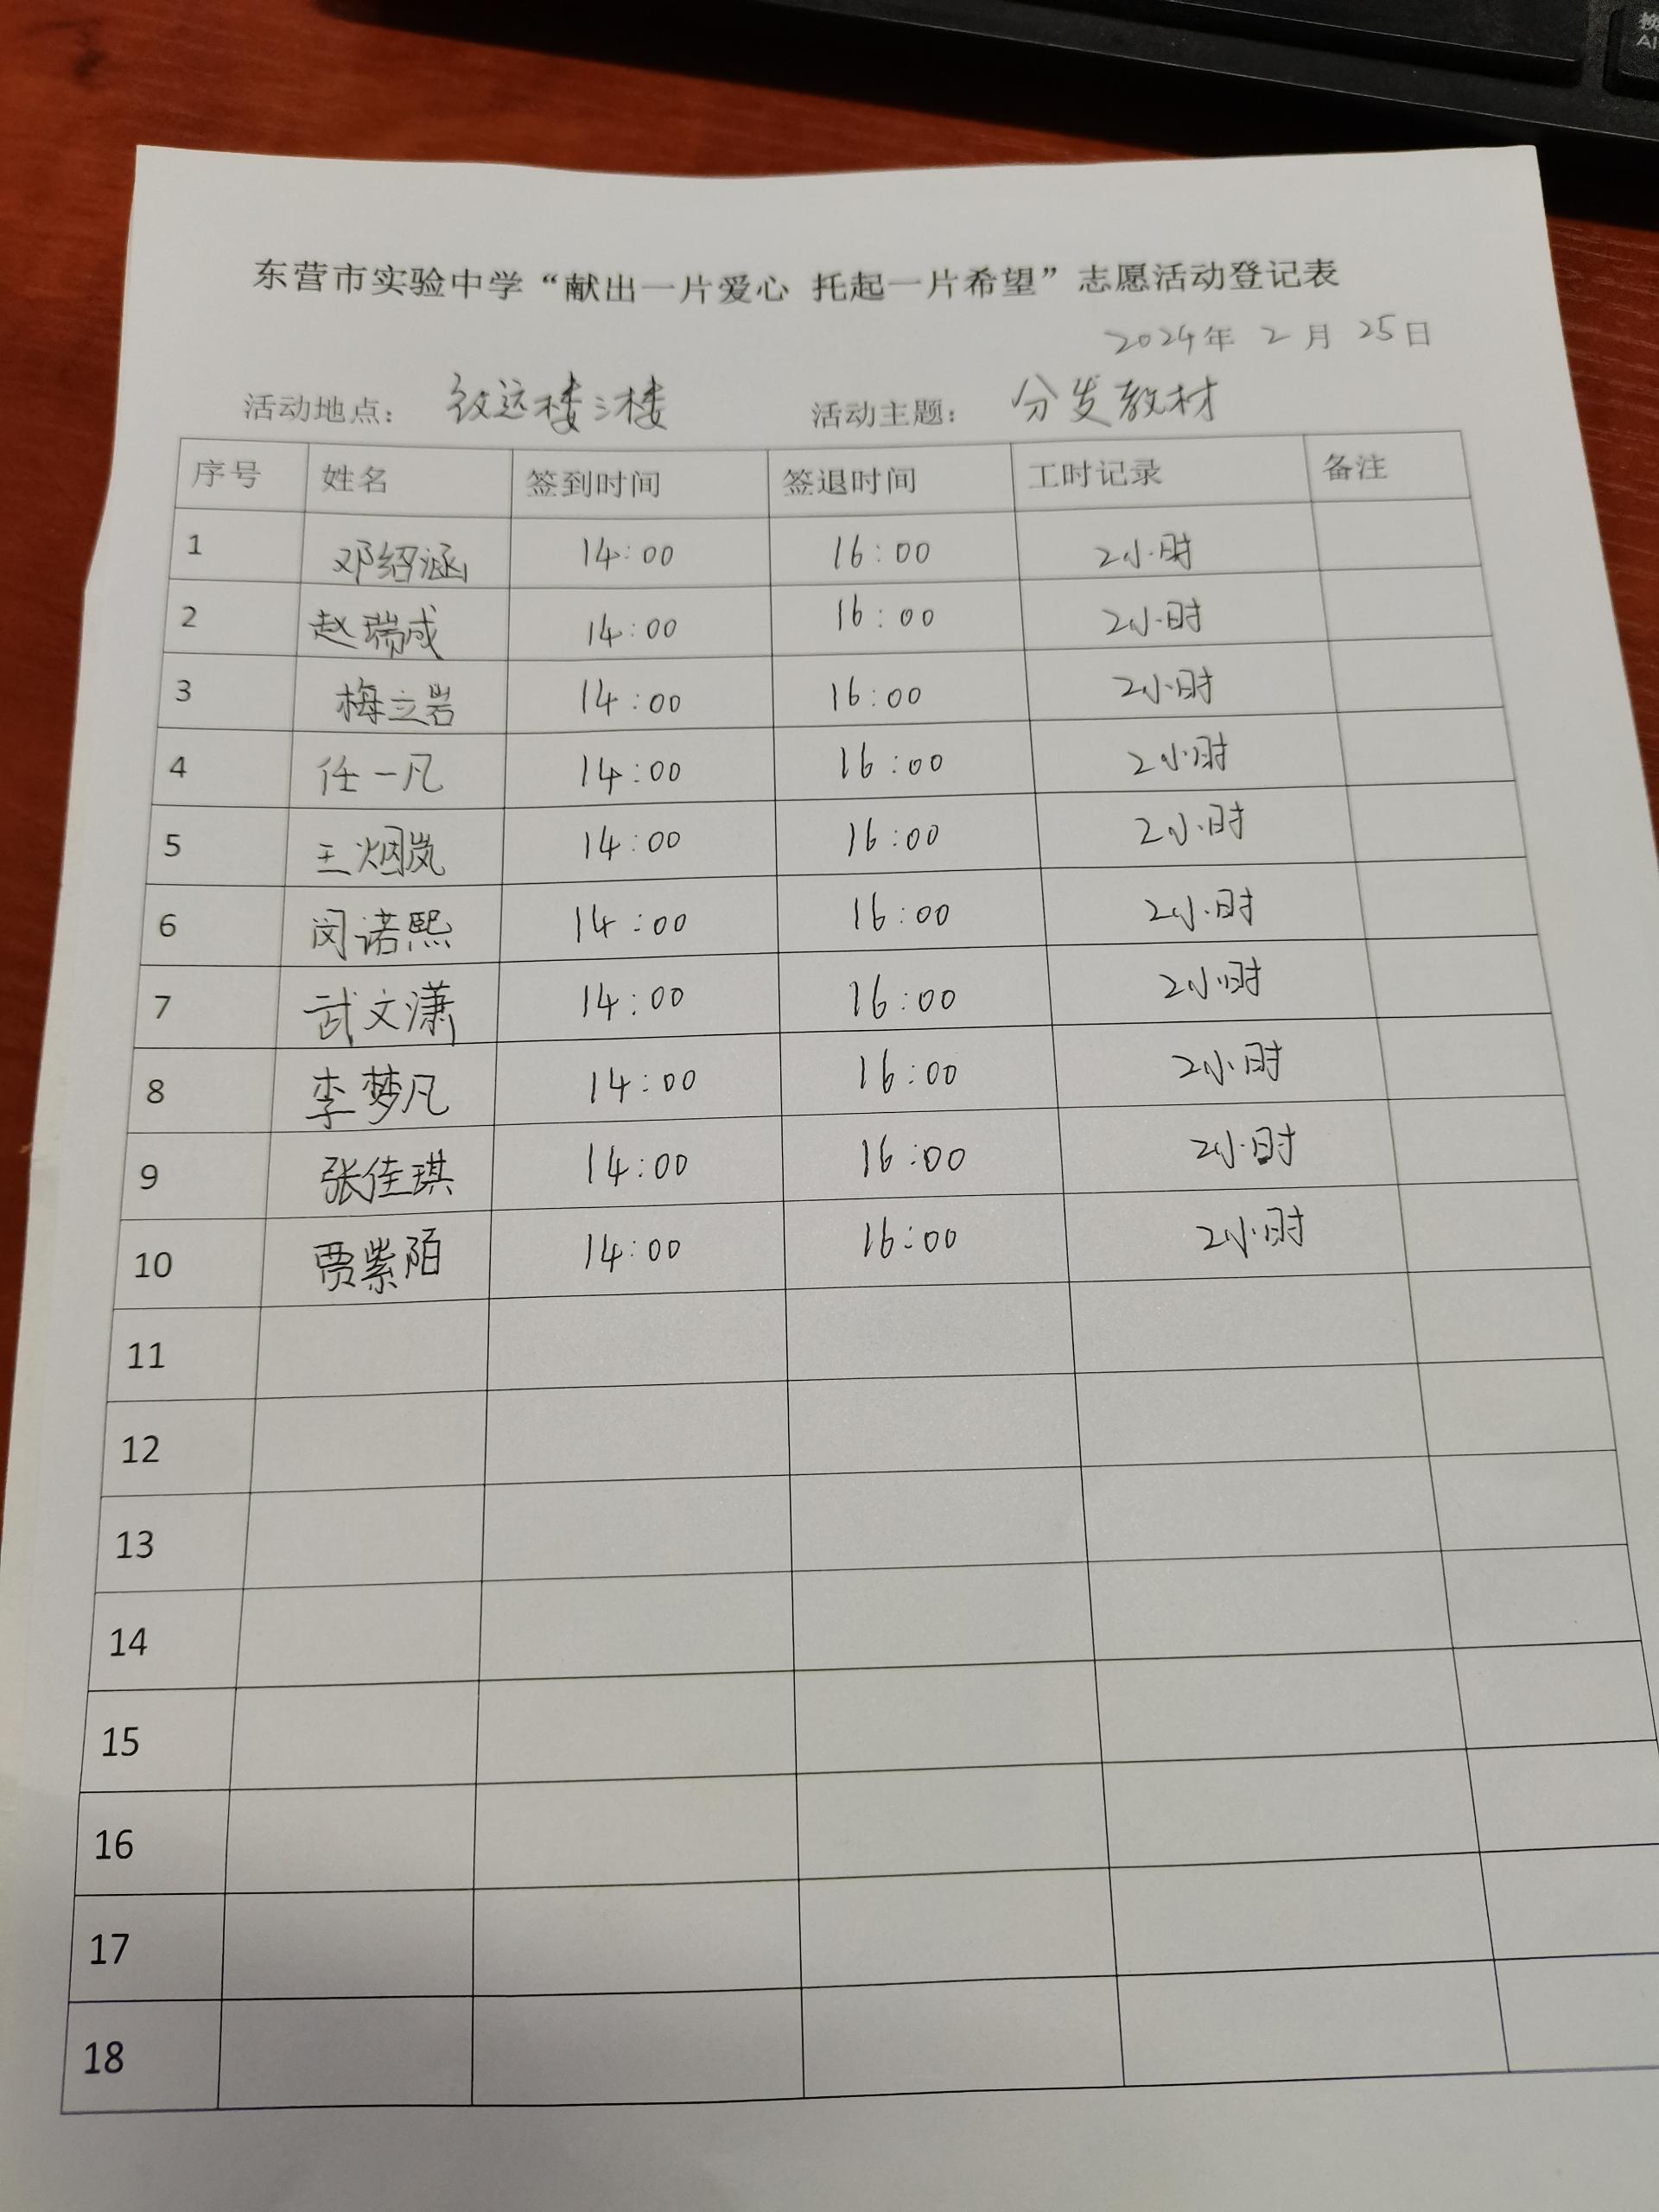 东营市实验中学“献出一片爱心 托起一片希望”志愿活动登记表
2024年 2 月 25日
活动地点： 致远楼三楼 活动主题： 分发教材
序号 姓名 签到时间 签退时间 工时记录 备注
1 邓绍涵 14:00 16:00 2小时
2 赵瑞成 14:00 16:00 2小时
3 梅立岩 14:00 16:00 2小时
4 任一凡 14:00 16:00 2小时
5 王烟岚 14:00 16:00 2小时
6 闵诺熙 14:00 16:00 2小时
7 武文潇 14:00 16:00 2小时
8 李梦凡 14:00 16:00 2小时
9 张佳琪 14:00 16:00 2小时
10 贾紫陌 14:00 16:00 2小时
11
12
13
14
15
16
17
18